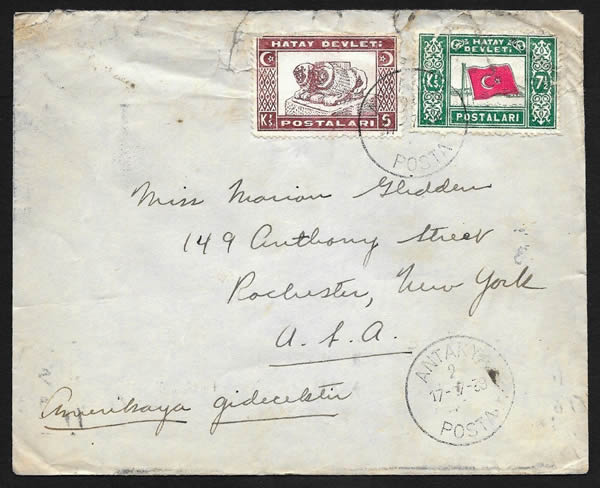 HATAY DEVLETİ
Kş. 5
POSTALARI
HATAY DEVLETİ
Kş. 7½
POSTALARI
POSTA
Miss Marion Glidden
149 Anthony Street
Rochester, New York
U.S.A.
Amerikaya gidecektir
ANTAKYA
2
17-V-39
POSTA